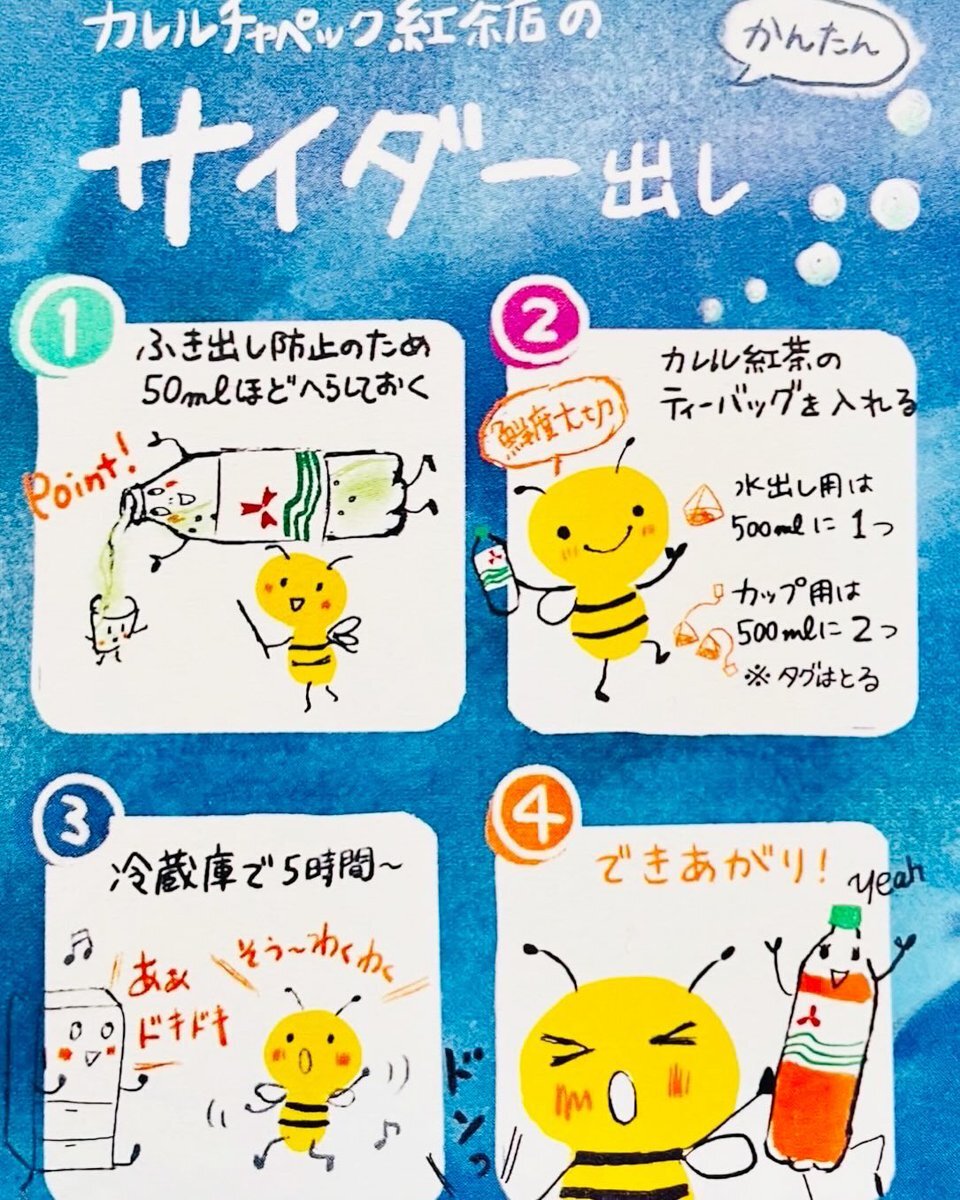 カレルチャペック紅茶店の
かんたん
サイダー出し
1
ふき出し防止のため
50mlほどへらしておく
Point!
2
カレル紅茶の
ティーバッグを入れる
鮮度大切
水出し用は
500mlに1つ
カップ用は
500mlに2つ
※タグはとる
3
冷蔵庫で5時間～
あぁ
ドキドキ
そう～わくわく
4
できあがり!
yeah
ドンっ